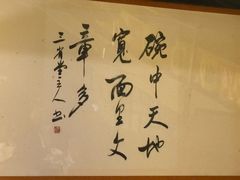 碗中天地
寬面里文
章多
三省堂主人書